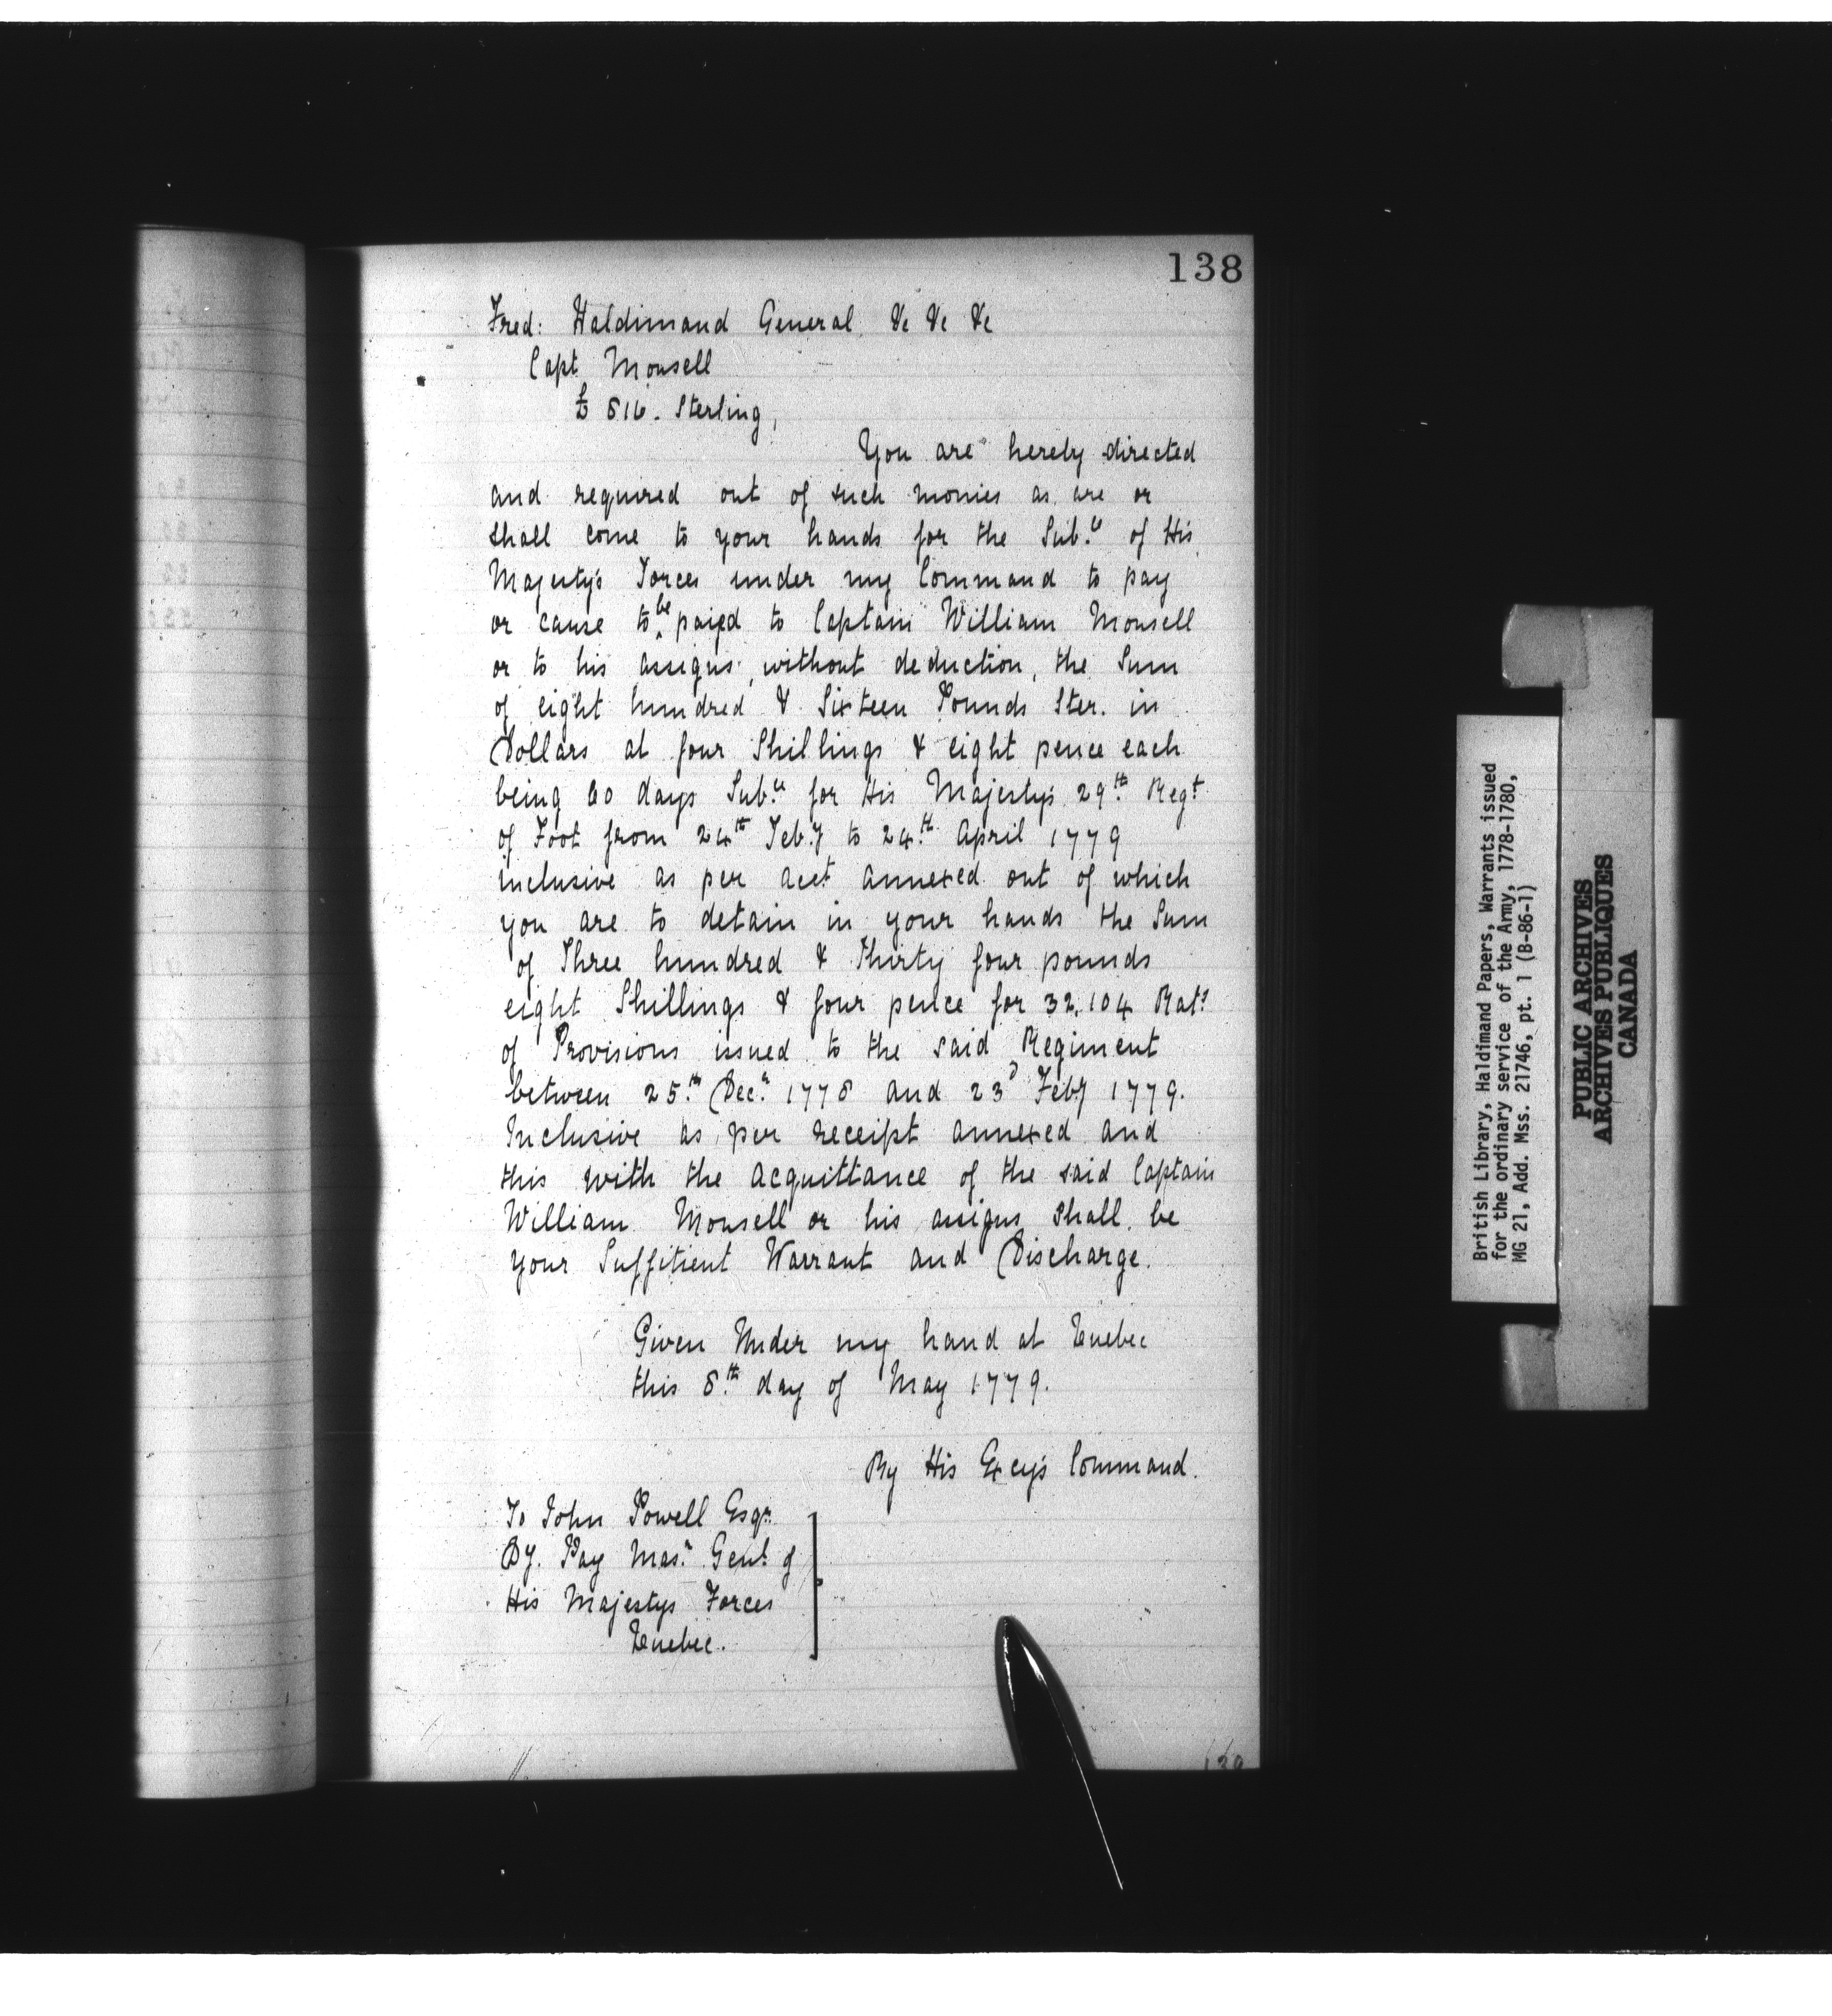 138
Fred: Haldimand General &c &c &c
Capt Monsell
£ 816. Sterling,
You are hereby directed
and required out of such monies as are or
shall come to your hands for the Sub.ce of His
Majesty's Forces under my Command to pay
or cause to be paid to Captain William Monsell
or to his assigns, without deduction, the Sum
of eight hundred & Sixteen Pounds Ster. in
Dollars at four Shillings & eight pence each
being 60 days Sub.ce for His Majesty's 29.th Regt
of Foot from 24th Feb.y to 24.th April 1779
inclusive as per acct annexed out of which
you are to detain in your hands the Sum
of Three hundred & Thirty four pounds
eight Shillings & four pence for 32,104 Rats
of Provisions issued to the said Regiment
between 25.th Dec.r 1778 and 23d Feby 1779.
Inclusive as per receipt annexed and
this with the acquittance of the said Captain
William Monsell or his assigns shall be
your Suffitient Warrant and Discharge.
Given Under my hand at Quebec
this 8.th day of May 1779.
By His Excy's Command.
To John Powell Esqr.
Dy. Pay Mas.r Genl. of
His Majestys Forces
Quebec.
139
British Library, Haldimand Papers, Warrants issued
for the ordinary service of the Army, 1778-1780,
MG 21, Add. Mss. 21746, pt. 1 (B-86-1)
PUBLIC ARCHIVES
ARCHIVES PUBLIQUES
CANADA